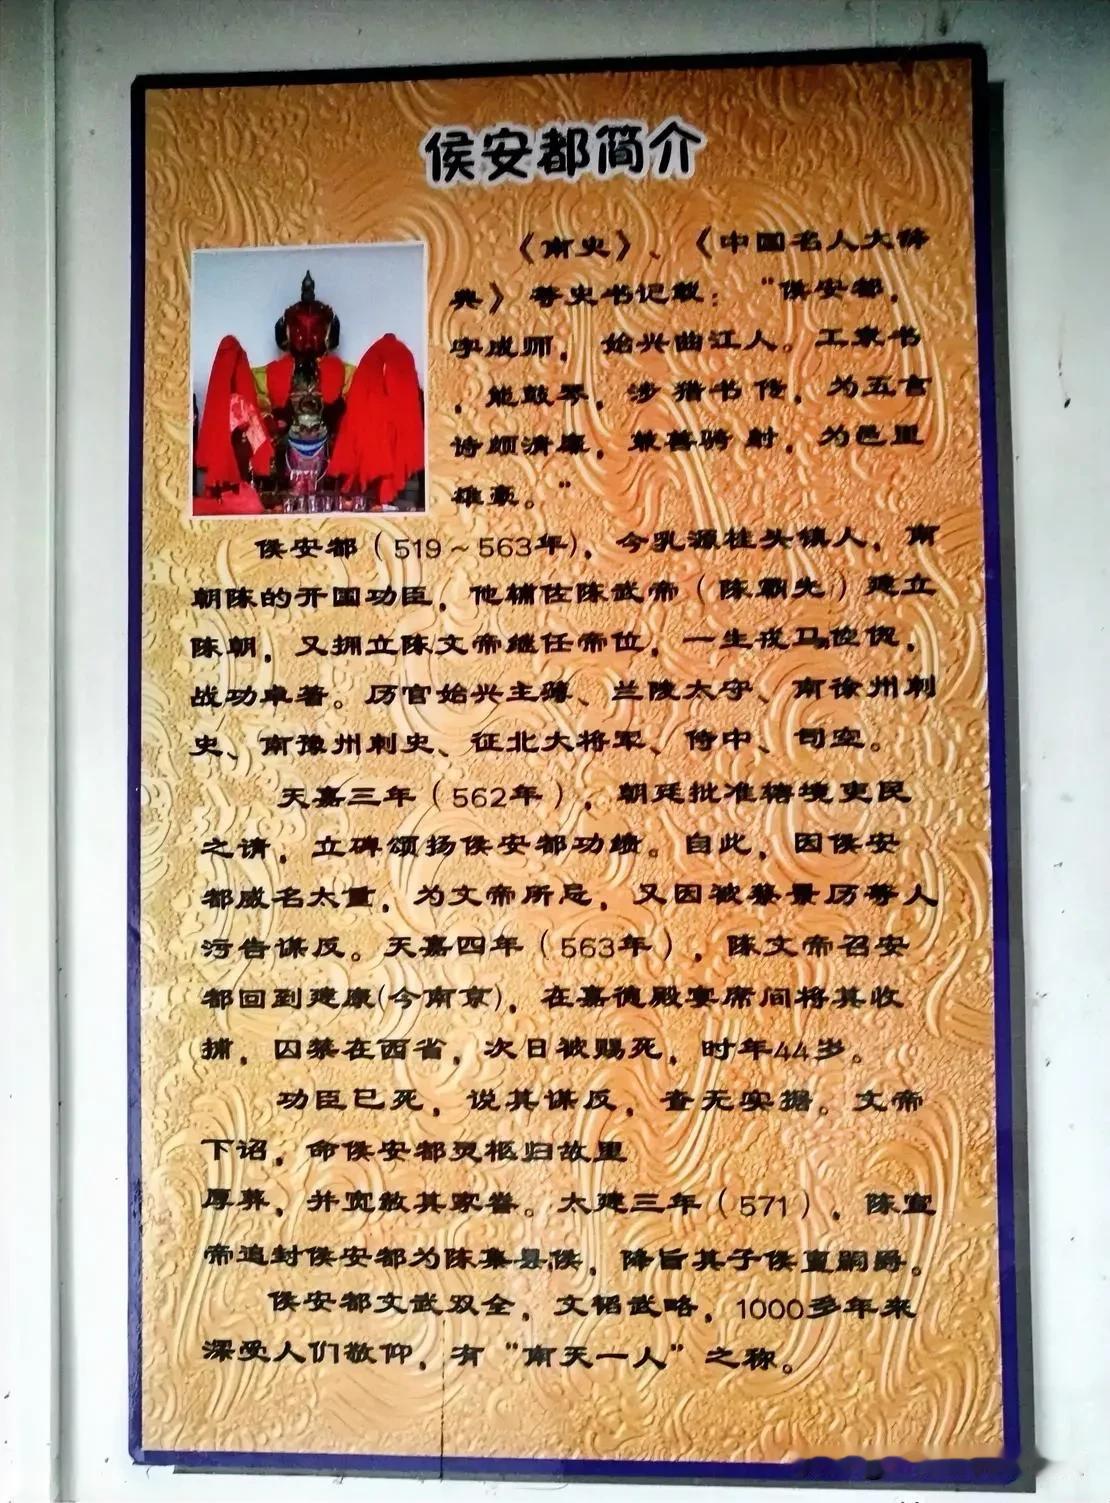 侯安都简介
《南史》、《中国名人大辞
典》等史书记载：“侯安都，
字成师，始兴曲江人。工隶书
，能鼓琴，涉猎书传，为五言
诗颇清靡，兼善骑射，为邑里
雄豪。”
侯安都（519～563年)，今乳源桂头镇人，南
朝陈的开国功臣，他辅佐陈武帝（陈霸先）建立
陈朝，又拥立陈文帝继任帝位，一生戎马倥偬，
战功卓著。历官始兴主薄、兰陵太守、南徐州刺
史、南豫州刺史、征北大将军、侍中、司空。
天嘉三年（562年），朝廷批准辖境吏民
之请，立碑颂扬侯安都功绩。自此，因侯安
都威名太重，为文帝所忌，又因被蔡景历等人
污告谋反。天嘉四年（563年），陈文帝召安
都回到建康(今南京)，在嘉德殿宴席间将其收
捕，囚禁在西省，次日被赐死，时年44岁。
功臣已死，说其谋反，查无实据。文帝
下诏，命侯安都灵柩归故里
厚葬，并宽赦其家眷。太建三年（571），陈宣
帝追封侯安都为陈集县侯，降旨其子侯亶嗣爵。
侯安都文武双全，文韬武略，1000多年来
深受人们敬仰，有“南天一人”之称。